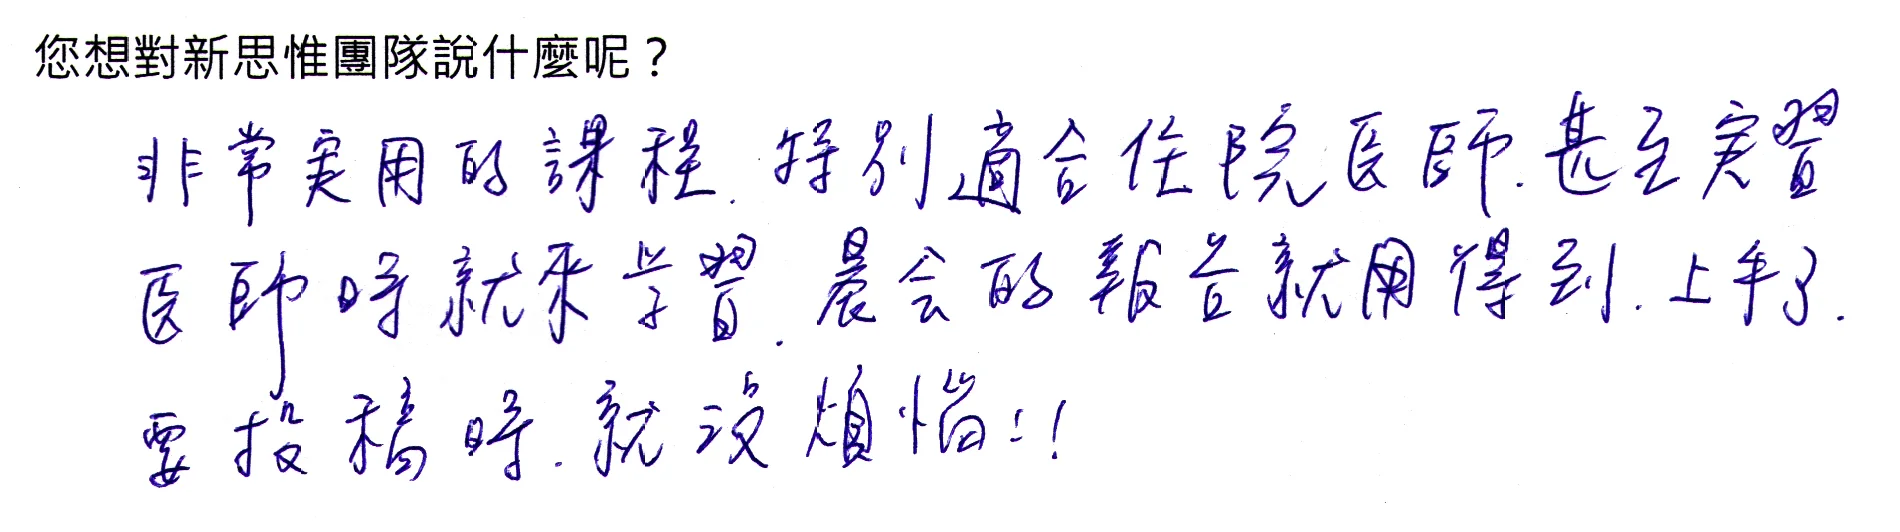 您想對新思惟團隊說什麼呢？
非常实用的課程. 特別適合住院医師. 甚至实習
医師時就來学習. 晨会的報告就用得到. 上手了.
要投稿時. 就沒煩惱!!